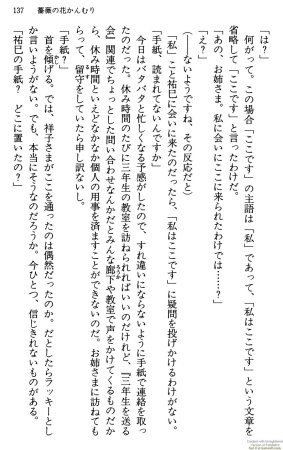 137　薔薇の花かんむり
「は？」
何がって。この場合「ここです」の主語は「私」であって、「私はここです」という文章を
省略して「ここです」と言ったわけだ。
「あの、お姉さま。私に会いにここに来られたわけでは……？」
「え？」
（――ないようですね、その反応だと）
「私」こと祐巳に会いに来たのだったら、「私はここです」に疑問を投げかけるわけがない。
「手紙、読まれてないんですか」
今日はバタバタと忙しくなる予感がしたので、すれ違いにならないように手紙で連絡を取っ
たのだった。休み時間のたびに三年生の教室を訪ねられればいいのだけれど、『三年生を送る
会』関連でちょっとした問い合わせなんかだとみんな廊下や教室で声をかけてくるものだか
ら、休み時間といえどなかなか個人の用事を済ますことができないのだ。お姉さまに訪ねても
らって、留守をしていたら申し訳ないし。
「手紙？」
首を傾げる。では、祥子さまがここを通ったのは偶然だったのか。だとしたらラッキーとし
か言いようがない。でも、本当にそうなのだろうか。今ひとつ、信じきれないものがある。
「祐巳の手紙？　どこに置いたの？」